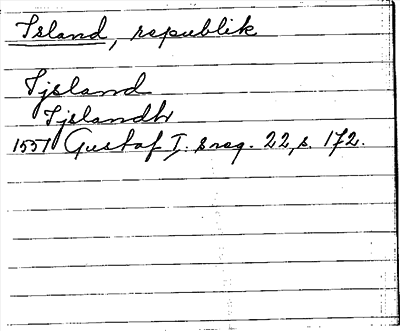 Island, republik
Ijsland
Ijslandh
1551 Gustaf I: s reg. 22, s. 172.